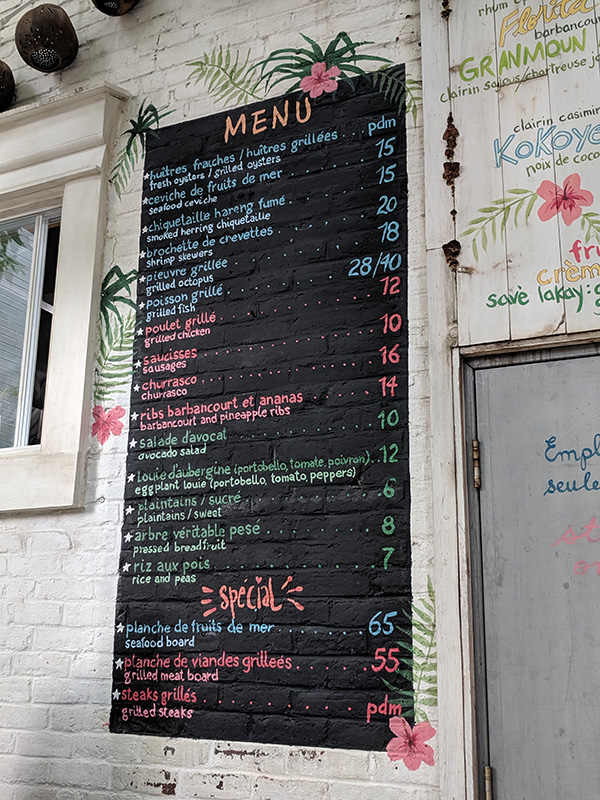 MENU
huîtres fraîches / huîtres grillées . . . pdm
fresh oysters / grilled oysters
ceviche de fruits de mer . . . 15
seafood ceviche
chiquetaille hareng fumé . . . 15
smoked herring chiquetaille
brochette de crevettes . . . 20
shrimp skewers
pieuvre grillée . . . 18
grilled octopus
poisson grillé . . . 28/40
grilled fish
poulet grillé . . . 12
grilled chicken
saucisses . . . 10
sausages
churrasco . . . 16
churrasco
ribs barbancourt et ananas . . . 14
barbancourt and pineapple ribs
salade d'avocat . . . 10
avocado salad
louie d'aubergine (portobello, tomate, poivron) . . 12
eggplant louie (portobello, tomato, peppers)
plaintains / sucré . . . 6
plaintains / sweet
arbre véritable pesé . . . 8
pressed breadfruit
riz aux pois . . . 7
rice and peas
spécial
planche de fruits de mer . . . 65
seafood board
planche de viandes grilleés . . . 55
grilled meat board
steaks grillés . . . pdm
grilled steaks
rhum
Florita
barbancou
GRANMOUN
clairin sajous/chartreuse
clairin casimir
KoKoye
noix de coco
fru
crèm
savè lakay:
Empl
seule
st